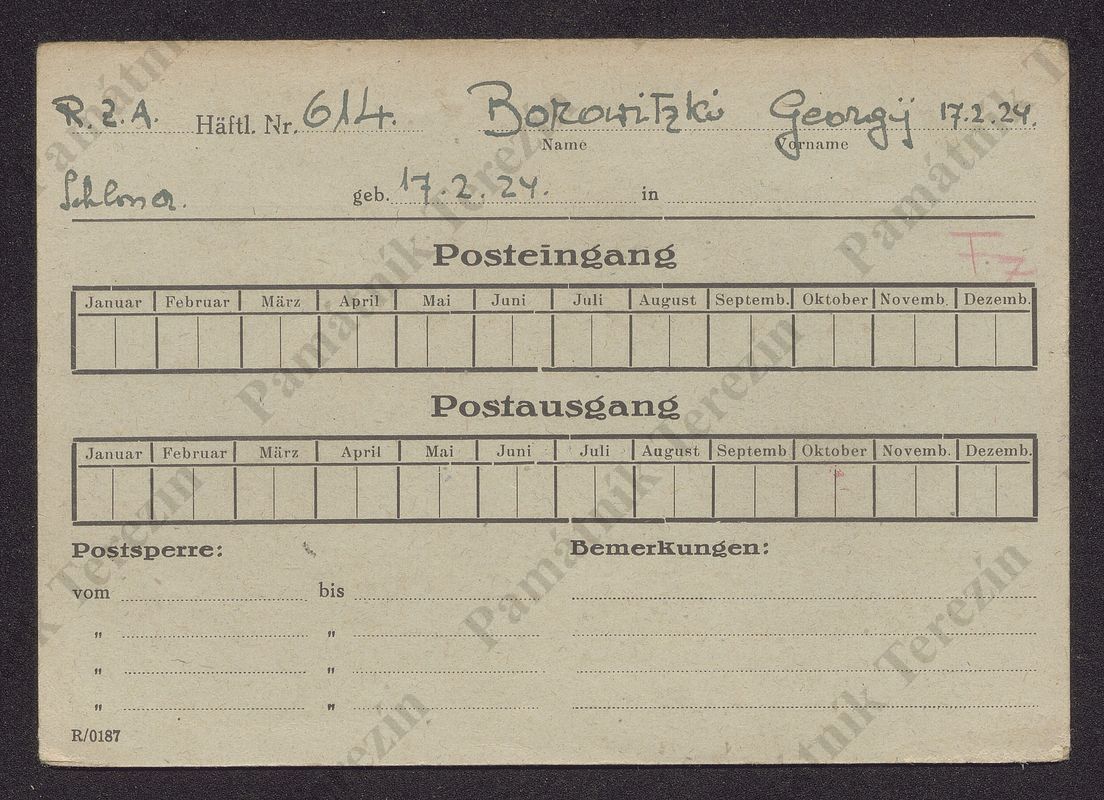 R.Z.A. Häftl. Nr. 614. Borowitzki Georgij 17.2.24.
Name Vorname
geb. 17.2.24. in
Posteingang
Januar Februar März April Mai Juni Juli August Septemb. Oktober Novemb. Dezemb.
Postausgang
Januar Februar März April Mai Juni Juli August Septemb Oktober Novemb. Dezemb.
Postsperre: Bemerkungen:
vom bis
" "
" "
" "
R/0187
Památník Terezín